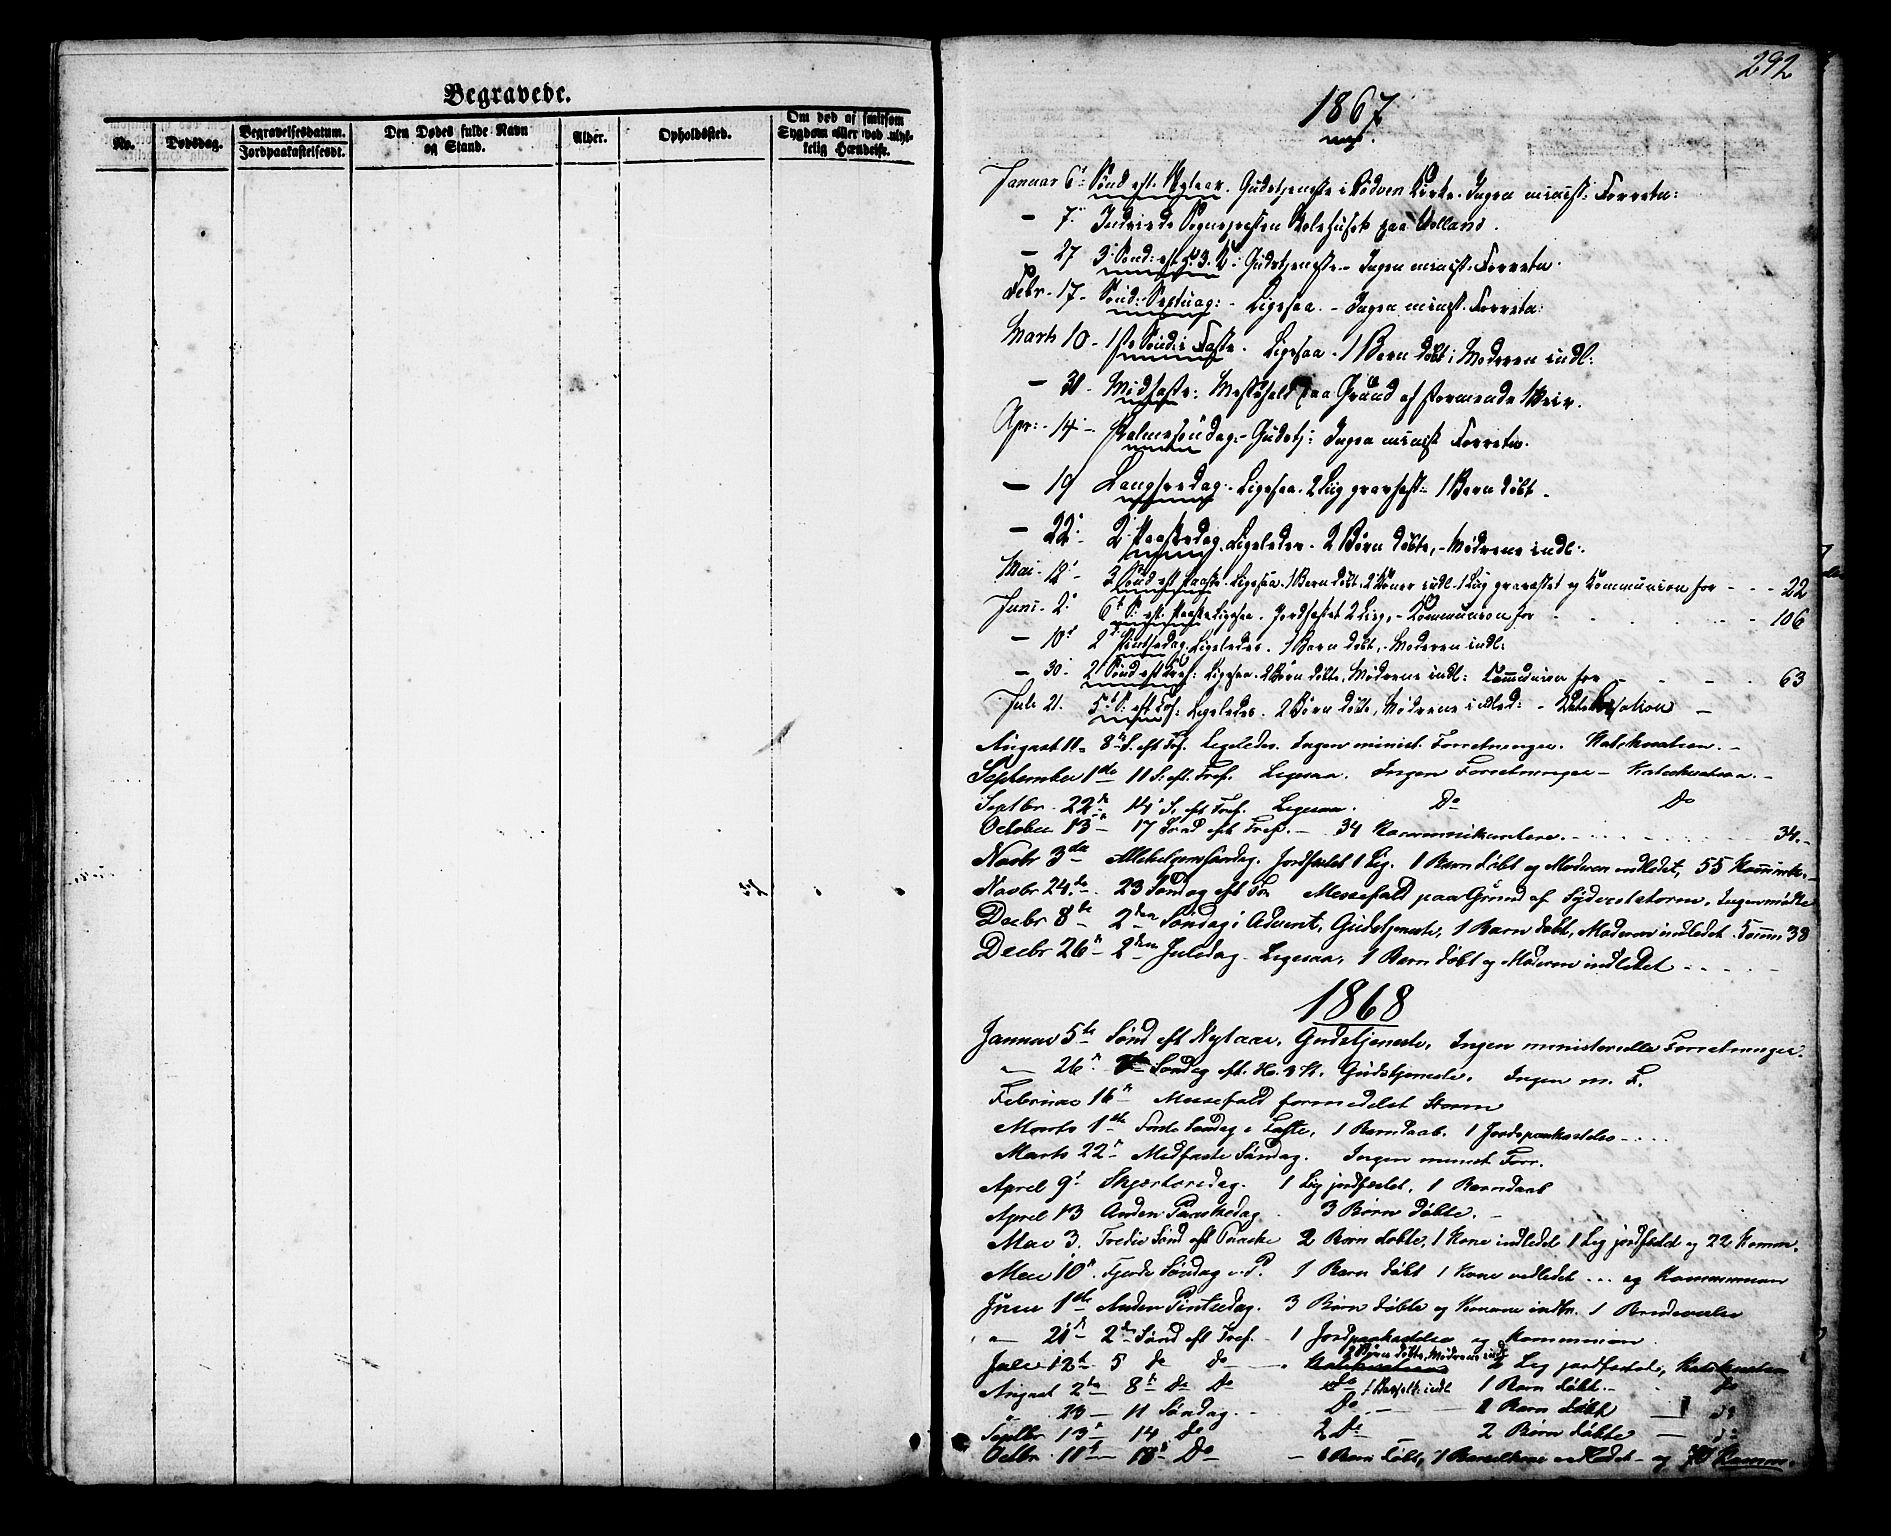 Begravede.
No.
Dødsdag.
Begravelsesdatum.
Jordpaakastelsesdt.
Den Dødes fulde Navn
og Stand.
Alder.
Opholdssted.
Om død af smitsom
Sygdom eller ved ulyk-
kelig Hændelse.
292
1867
Januar 6t Sønd eft. Nytaar. Gudstjeneste i Rødven Kirke. Ingen minist: Forretn:
— 7. Indviede Sognepresten Skolehuset paa
— 27 3 Sønd: eft. H. 3. K. Gudstjeneste - Ingen minist. Forretn.
Febr. 17 - Sønd: Septuag: - Ligesaa. - Ingen minist. Forretn:
Marts 10 - 1ste Sønd: i Faste. Ligesaa. 1 Barn døbt; Moderen indl:
— 31. Midfaste: Messefald paa Grund af stormende Veir.
Apr: 14 - Palmesøndag: - Gudstj: Ingen minist Forretn.
— 19 Langfredag: - Ligesaa. 2 Liig gravfæst: 1 Barn døbt.
— 22. 2 Paaskedag. Ligeledes. 2 Børn døbte, - Mødrene indl:
Mai. 12 - 3 Sønd eft Paaske. Ligesaa. 1 Barn døbt, 2 Koner indl. 1 Liig gravfæstet og Kommunion for - - - 22
Juni. 2. 6te S: eft. Paaske Ligesaa. Jordfæstet 2 Liig, - Kommunion for 106
— 10. 2 Pintsedag. Ligeledes. 1 Barn døbt, - Moderen indl:
— 30. 2 Sønd eft Tref: Ligesaa. 2 Børn døbte, Mødrene indl: Communion for 63
Juli 21. 5te S: eft Tref: Ligeledes. 2 Børn døbte, Mødrene indled: - Katekisation —
August 11. 8de S. eft Tref. Ligeledes. Ingen minist. Forretninger. Katekisation. —
September 1ste 11 S. eft. Tref. Ligesaa. Ingen Forretninger — Katekisation. —
Septbr. 22de 14 S. eft Tref. Ligesaa. Do Do
October 13 — 17 Sønd eft Tref. — 34 Kommunikantere. 34.
Novbr 3die Allehelgenssøndag. Jordfæstet 1 Lig. 1 Barn døbt og Moderen indledet, 55
Novbr 24de 23 Søndag eft Tr. Messefald paa Grund af Ingen mødte
Decbr 8de 2den Søndag i Advent, Gudstjeneste, 1 Barn døbt, Moderen indledet. Comm 38
Decbr 26 — 2den Juledag. Ligesaa, 1 Barn døbt og Moderen indledet
1868
Januar 5te Sønd eft Nytaar. Gudstjeneste. Ingen ministerielle Forretninger.
— 26. Søndag eft. H. 3 K. Gudstjeneste. Ingen m. F.
Februar 16 — Messefald formedelst Storm
Marts 1ste Første Søndag i Faste, 1 Barndaab. 1 Jordspaakastelse
Marts 22 Midfaste Søndag. Ingen minist Forr.
April 9. Skjærtorsdag. 1 Lig jordfæstet, 1 Barndaab
April 13 Anden Paaskedag 3 Børn døbte.
Mai 3. Tredie Sønd eft Paaske 2 Børn døbte, 1 Kone indledet 1 Lig jordfæstet og 22 Komm.
Mai 10. Fjerde Søndag e. P. 1 Barn døbt 1 Kone indledet ... og Kommunion
Juni 1ste Anden Pintsedag. 3 Børn døbte og Konerne indtr. 1 Brudevielse
" — 21 2den Sønd eft Tref. — 1 Jordpaakastelse og Kommunion
2 Børn døbte, Mødrene indl
Juli 12t 5 do do — Lig jordfæstede, Katekisation
August 2den 8de Do Do 1 Barselk: indl 1 Barn døbt. do
23 — 11 Søndag Do 1 Barn døbt do
Septbr 13 — 14 do 2 Do 2 Børn døbte —
Octbr 11te — 18 Do — 1 Barn døbt, 1 Barselkone indledet — og Komm.